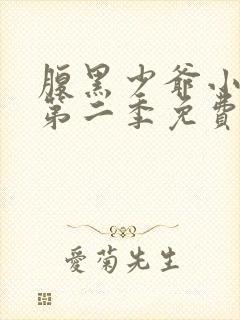 腹黑少爷小
第二季免費
愛菊先生